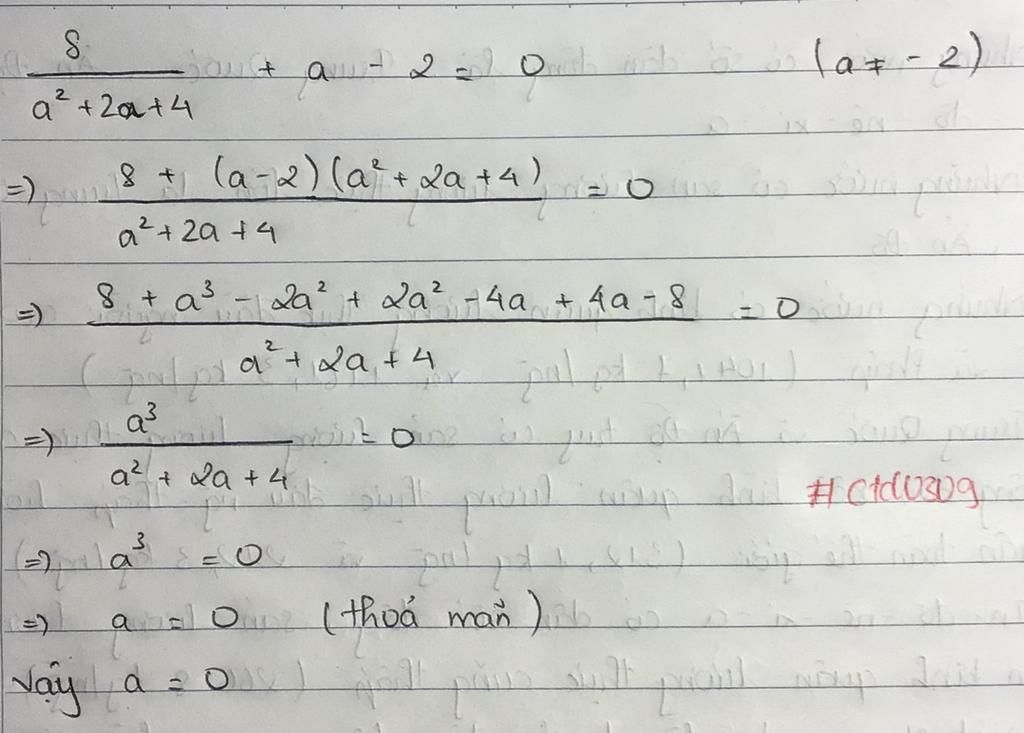 8/(a² + 2a + 4) + a - 2 = 0 (a ≠ - 2)
=) (8 + (a-2)(a² + 2a + 4))/(a² + 2a + 4) = 0
=) (8 + a³ - 2a² + 2a² - 4a + 4a - 8)/(a² + 2a + 4) = 0
=) a³/(a² + 2a + 4) = 0
#Ctd0309
=) a³ = 0
=) a = 0 (thoả mãn)
Vậy a = 0